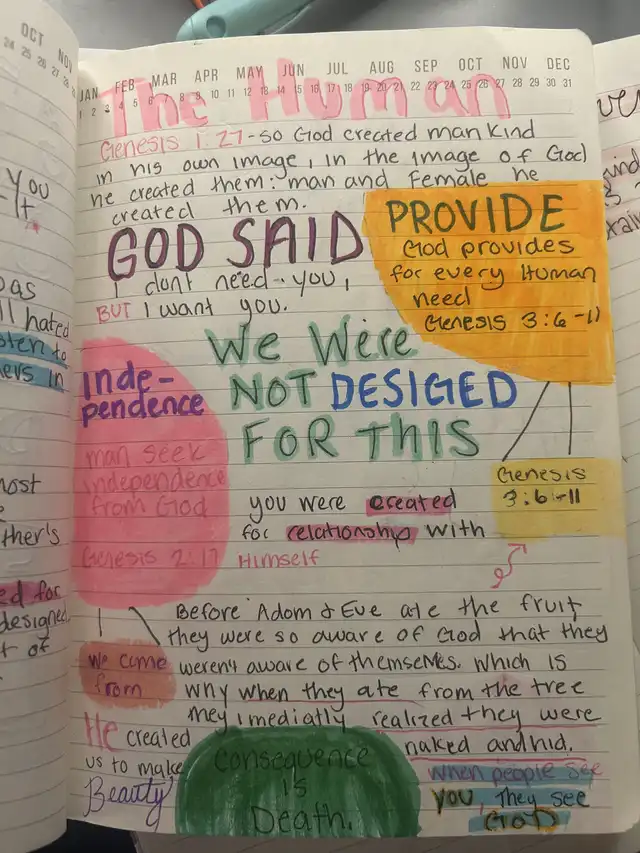 OCT NOV
JAN FEB MAR APR MAY JUN JUL AUG SEP OCT NOV DEC
1 2 3 4 5 6 7 8 9 10 11 12 13 14 15 16 17 18 19 20 21 22 23 24 25 26 27 28 29 30 31
The Human
Genesis 1:27 - so God created mankind
in his own image, in the image of God
he created them: man and female he
created them.
GOD SAID
I dont need you,
BUT I want you.
PROVIDE
God provides
for every Human
need
Genesis 3:6-11
We Were
NOT DESIGED
FOR THIS
Inde-
pendence
man seek
independence
from God
Genesis 2:17
Genesis
3:6-11
you were created
for relationship with
Himself
Before Adom & Eve ate the fruit
they were so aware of God that they
weren't aware of themselves. which is
why when they ate from the tree
they imediatly realized they were
naked and hid.
we came
from
He created
us to make
Beauty
Consequence
is
Death.
when people see
you, They see
GOD
you
hated
most
ther's
ed for
designed
of